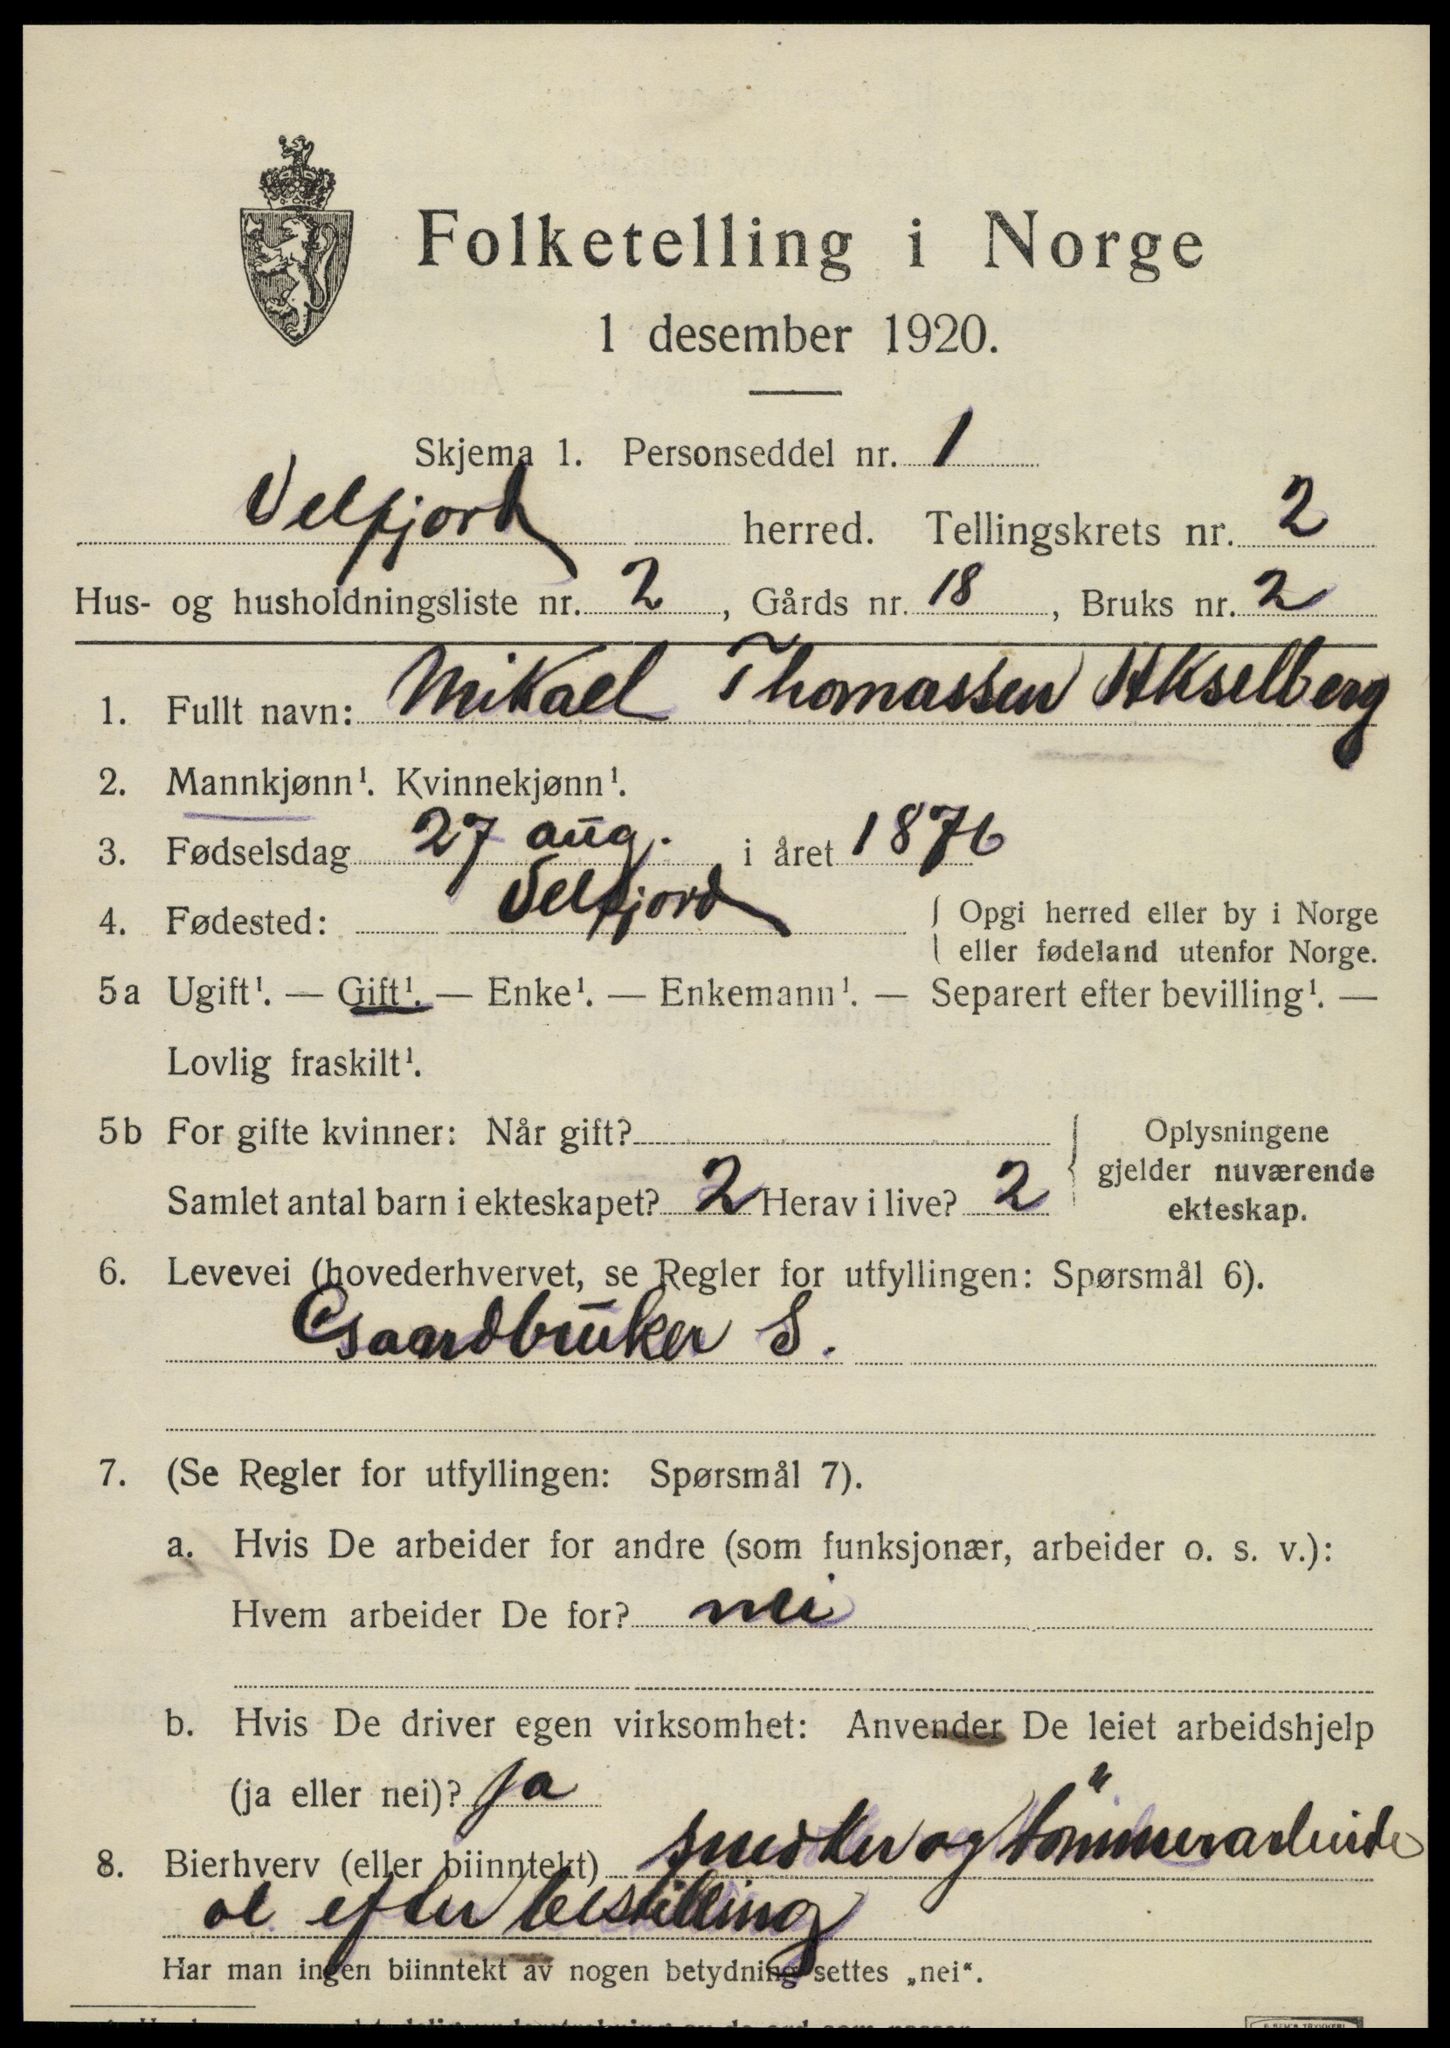 Folketelling i Norge
1 desember 1920.
Skjema 1. Personseddel nr. 1
Velfjord herred. Tellingskrets nr. 2
Hus- og husholdningsliste nr. 2, Gårds nr. 18, Bruks nr. 2
1. Fullt navn: Mikael Thomassen Akselberg
2. Mannkjønn¹. Kvinnekjønn¹.
3. Fødselsdag 27 aug. i året 1876
4. Fødested: Velfjord { Opgi herred eller by i Norge
eller fødeland utenfor Norge.
5a Ugift¹. — Gift¹. — Enke¹. — Enkemann¹. — Separert efter bevilling¹. —
Lovlig fraskilt¹.
5b For gifte kvinner: Når gift?
Samlet antal barn i ekteskapet? 2 Herav i live? 2
Oplysningene
gjelder nuværende
ekteskap.
6. Levevei (hovederhvervet, se Regler for utfyllingen: Spørsmål 6).
Gaardbruker S.
7. (Se Regler for utfyllingen: Spørsmål 7).
a. Hvis De arbeider for andre (som funksjonær, arbeider o. s. v.):
Hvem arbeider De for? nei
b. Hvis De driver egen virksomhet: Anvender De leiet arbeidshjelp
(ja eller nei)? ja
8. Bierhverv (eller biinntekt) snedker og tömmerarbeide
efter bestilling
Har man ingen biinntekt av nogen betydning settes „nei“.